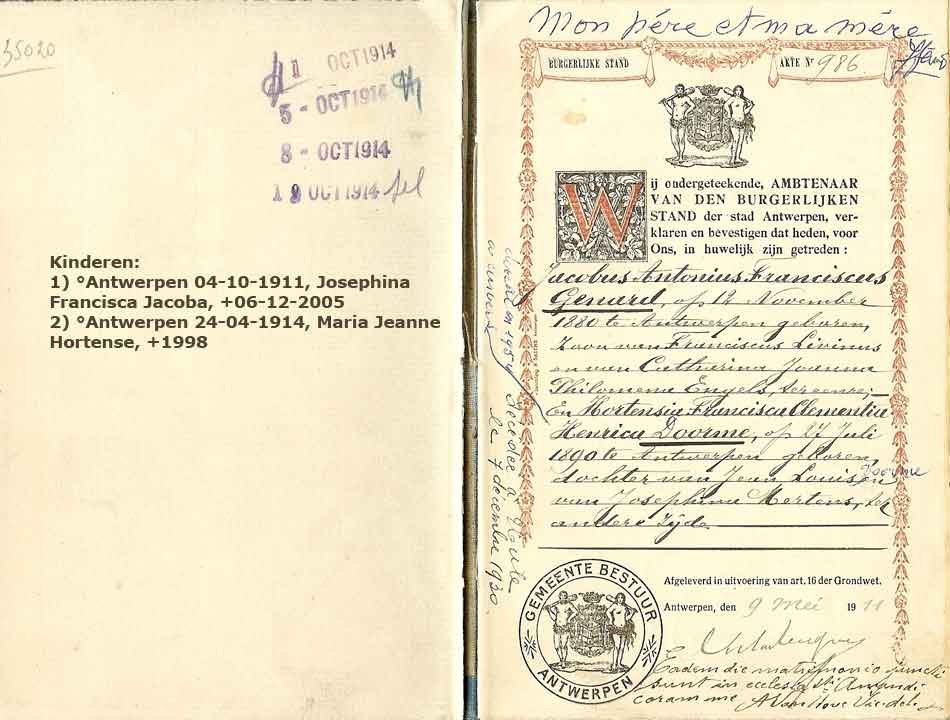 35020
OCT1914
5 - OCT1914
8 - OCT1914
OCT1914
Kinderen:
1) °Antwerpen 04-10-1911, Josephina
Francisca Jacoba, +06-12-2005
2) °Antwerpen 24-04-1914, Maria Jeanne
Hortense, +1998
Mon père et ma mère
BURGERLIJKE STAND
AKTE N° 986
Wij ondergeteekende, AMBTENAAR
VAN DEN BURGERLIJKEN
STAND der stad Antwerpen, ver-
klaren en bevestigen dat heden, voor
Ons, in huwelijk zijn getreden :
Jacobus Antonius Franciscus
Genard, op 12 November
1880 te Antwerpen geboren,
Zoon van Franciscus Livinus
en van Catharina Joanna
Philomena Engels, ter eenre;
En Hortensia Francisca Clementia
Henrica Doorme, op 27 Juli
1890 te Antwerpen geboren,
dochter van Jean Louis en
Doorme
van Josephina Mertens, ter
andere zijde.
décédée
le 7 décembre 1930.
GEMEENTE BESTUUR
ANTWERPEN
Afgeleverd in uitvoering van art. 16 der Grondwet.
Antwerpen, den 9 Mei 1911
Eadem die matrimonio juncti
sunt in ecclesia Sti Amandi
coram me